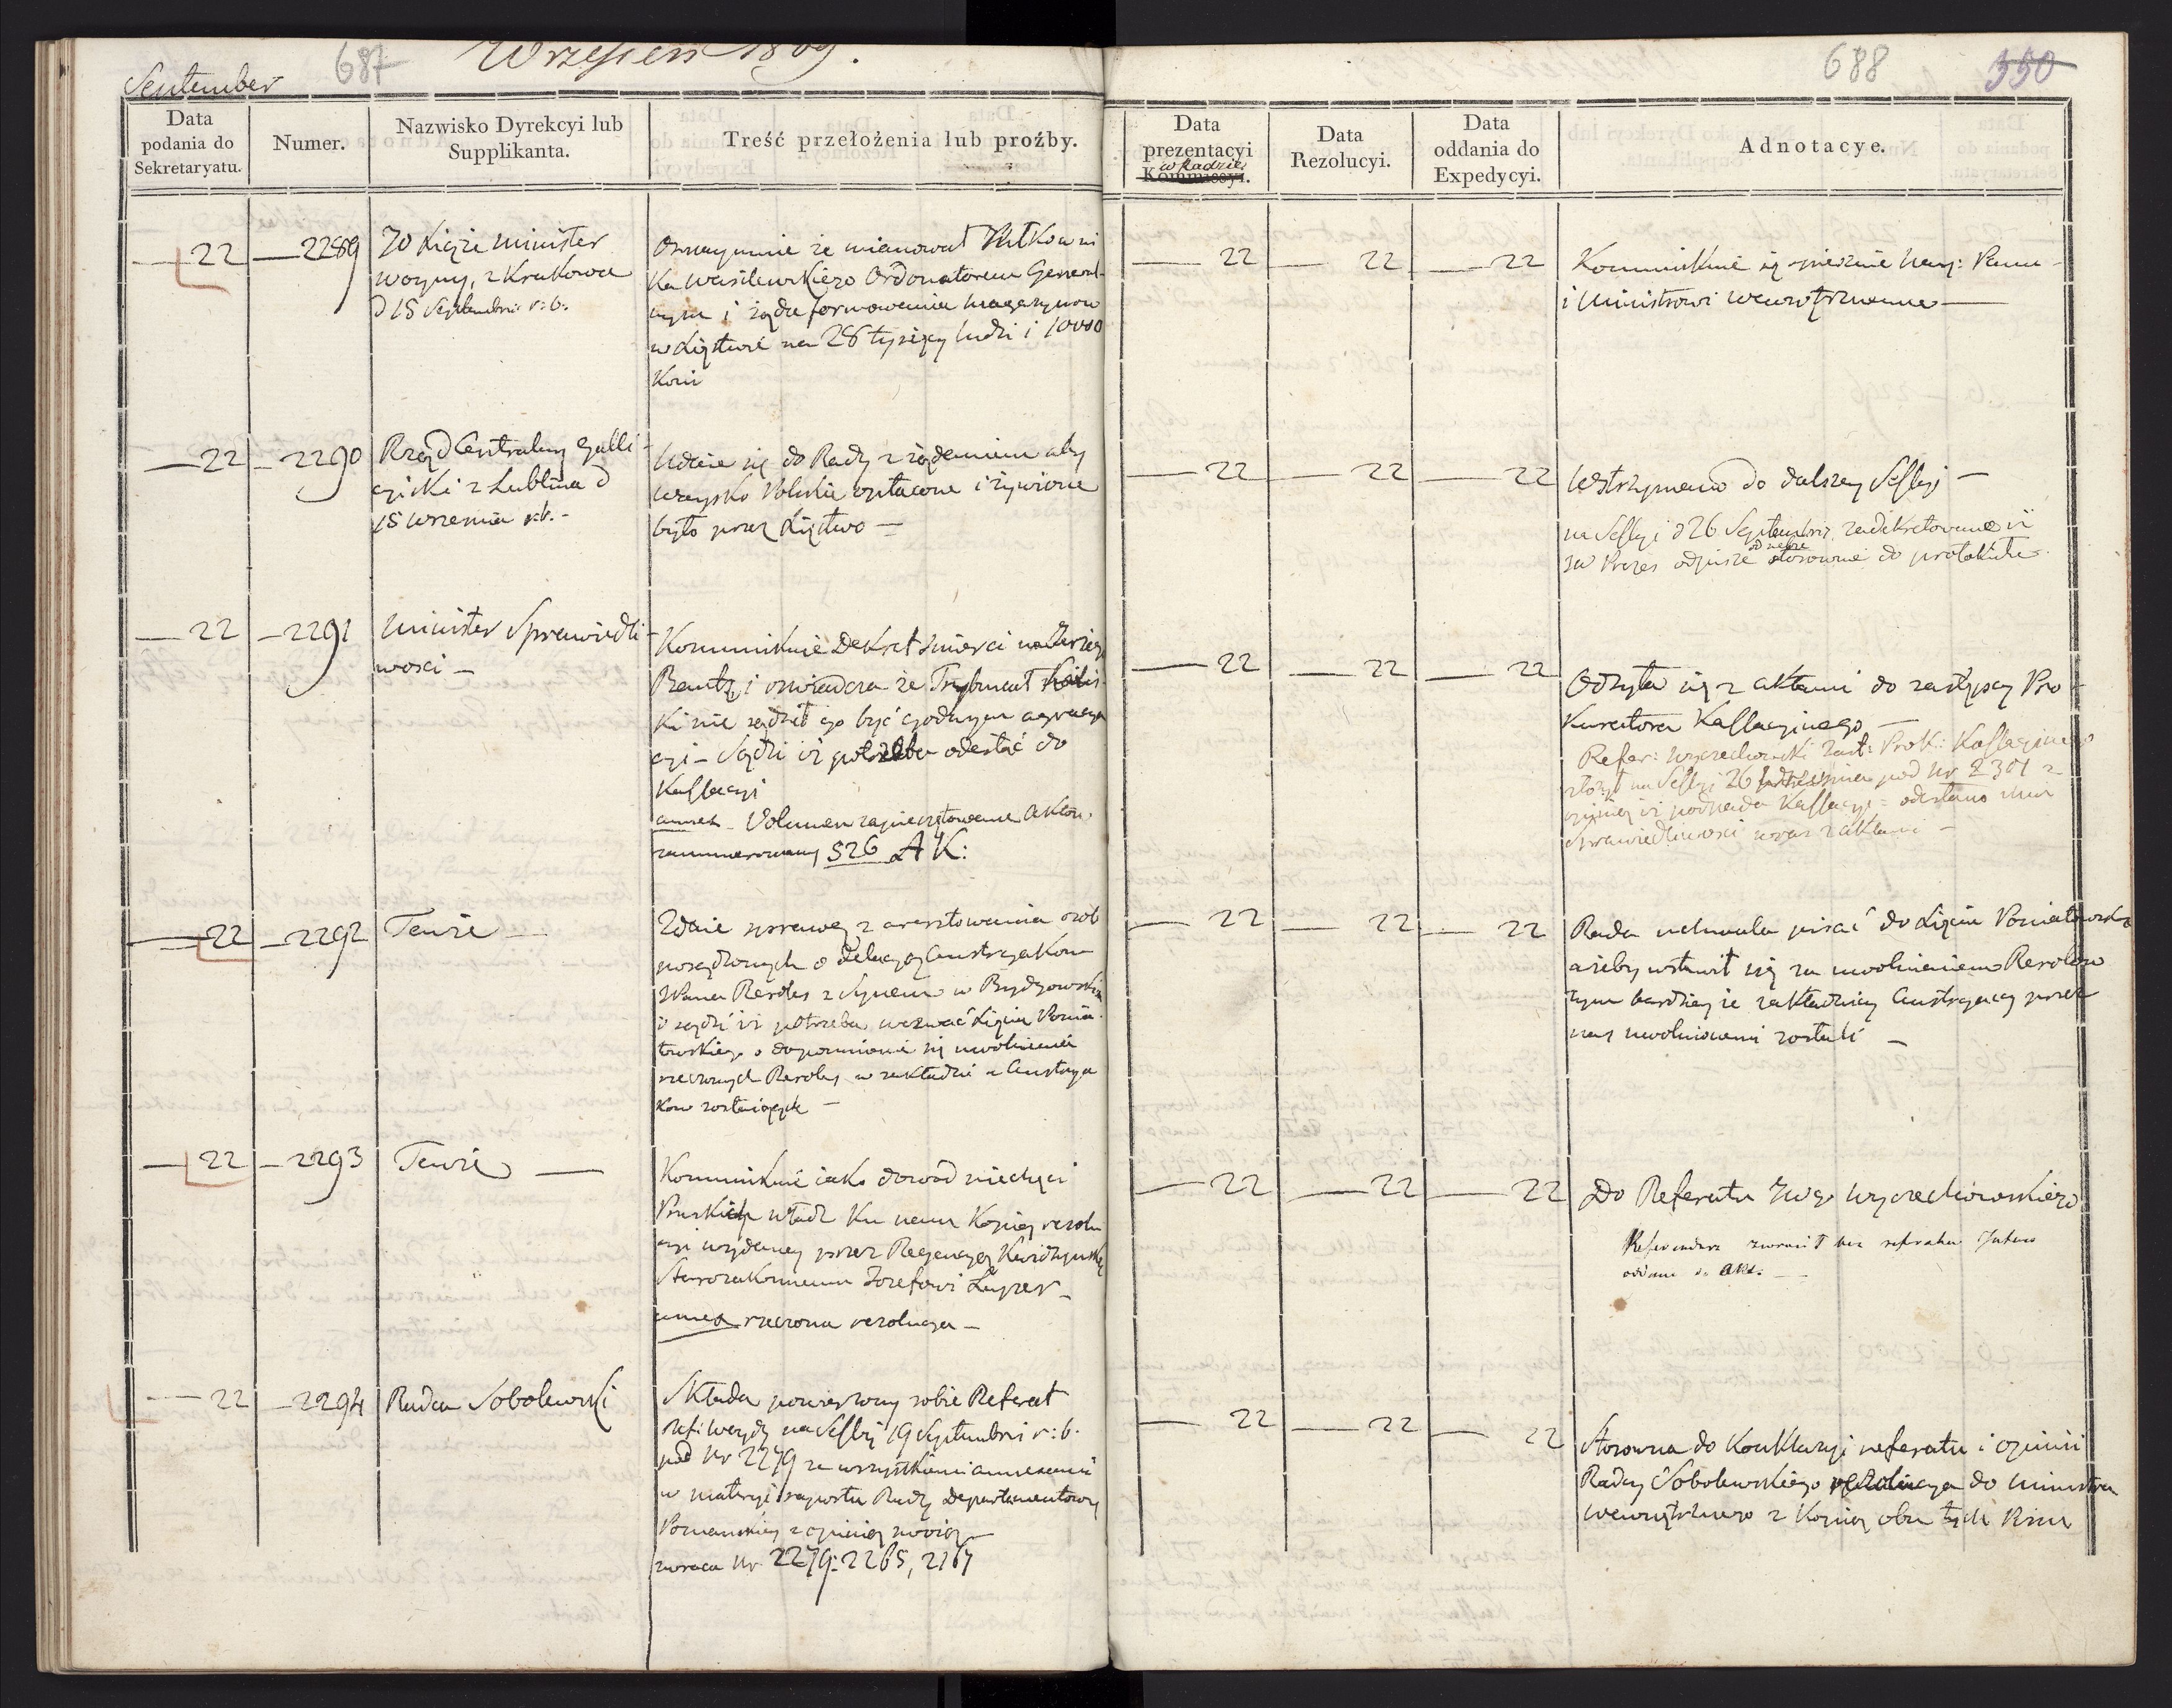 September
687
Wrzesień 1809.
Data podania do Sekretaryatu.
Numer.
Nazwisko Dyrekcyi lub Supplikanta.
Treść przełożenia lub proźby.
22
2289
JO Xiąże Minister
woyny, z Krakowa
d 15 Septembris r: b:
Oznaymuie że mianował Pułkowni
ka Wasilewskiego Ordonatorem General
nym i żąda formowania magazynów
w Xięstwie na 28 tysięcy ludzi i 10000
Koni
22
2290
Rząd Centralny Galli
cyiski z Lublina d
15 Września r:b.-
Udaie się do Rady z żądaniem aby
Woysko Polskie opłacone i żywione
było przez Xięstwo —
22
2291
Minister Sprawiedli
wosci —
Kommunikuie Dekret śmierci na
i oswiadcza że Trybunał
ki nie sądził go być godnym
cyi - Sądzi iż potrzeba odesłać do
Kassacyi
annex - Volumen zapieczętowane Aktow
zannumerowany 526 AK:
22
2292
Tenże —
Zdaie sprawę z aresztowania osob
posądzonych o
i sądzi iż potrzeba wezwać Xięcia Ponia
towskiego o dopomnienie się uwolnienia
rzeczonych w zakładzie u Austrya
kow zostaiących —
22
2293
Tenże —
Kommunikuie iako dowód niechęci
Pruskich władz ku nam Kopią rezolu
cyi wydaney przez Regencyą Kwidzyńską
Starozakonnemu Jozefowi
annex rzeczona rezolucya —
22
2294
Radca Sobolewski
Składa powierzony sobie Referat
na Sessyi 19 Septembris r: b.
pod Nr 2279 ze wszystkiemi annexami
w materyi raportu Rady Departamentowey
Poznańskiey z opinią swoią —
zwraca Nr 2279: 2265, 2167
688
350
Data prezentacyi Kommissyi.
w Radzie
Data Rezolucyi.
Data oddania do Expedycyi.
Adnotacye.
22
22
22
Kommunikuie się Panu
i Ministrowi wewnętrznemu —
22
22
22
Wstrzymano do dalszey Sessyi —
na Sessyi d 26 Septembris zadekretowano iż
JW Prezes odpisze stosownie do protokułu
22
22
22
Odsyła się z aktami do zastępcy Pro
kuratora Kassacyinego —
Refer: Wyczechowski Zast: Prok: Kassacyinego
złożył na Sessyi 26 pod Nr 2301 z
opinią iż podpada Kassacyi = odesłano
Sprawiedliwosci wraz z aktami —
22
22
22
Rada uchwala pisać do Xięcia Poniatowskiego
ażeby wstawił się za uwolnieniem
tym bardziey że zakładnicy Austryaccy przez
nas uwolnionemi zostali —
22
22
22
Do Referatu JWgo Wyczechowskiego
Referendarz zwrócił bez referatu
oddane do Akt. —
22
22
22
Stosowna do Konkluzyi referatu i opinii
Radcy Sobolewskiego rezolucya do Ministra
wewnętrznego z Kopią obu tych Pism